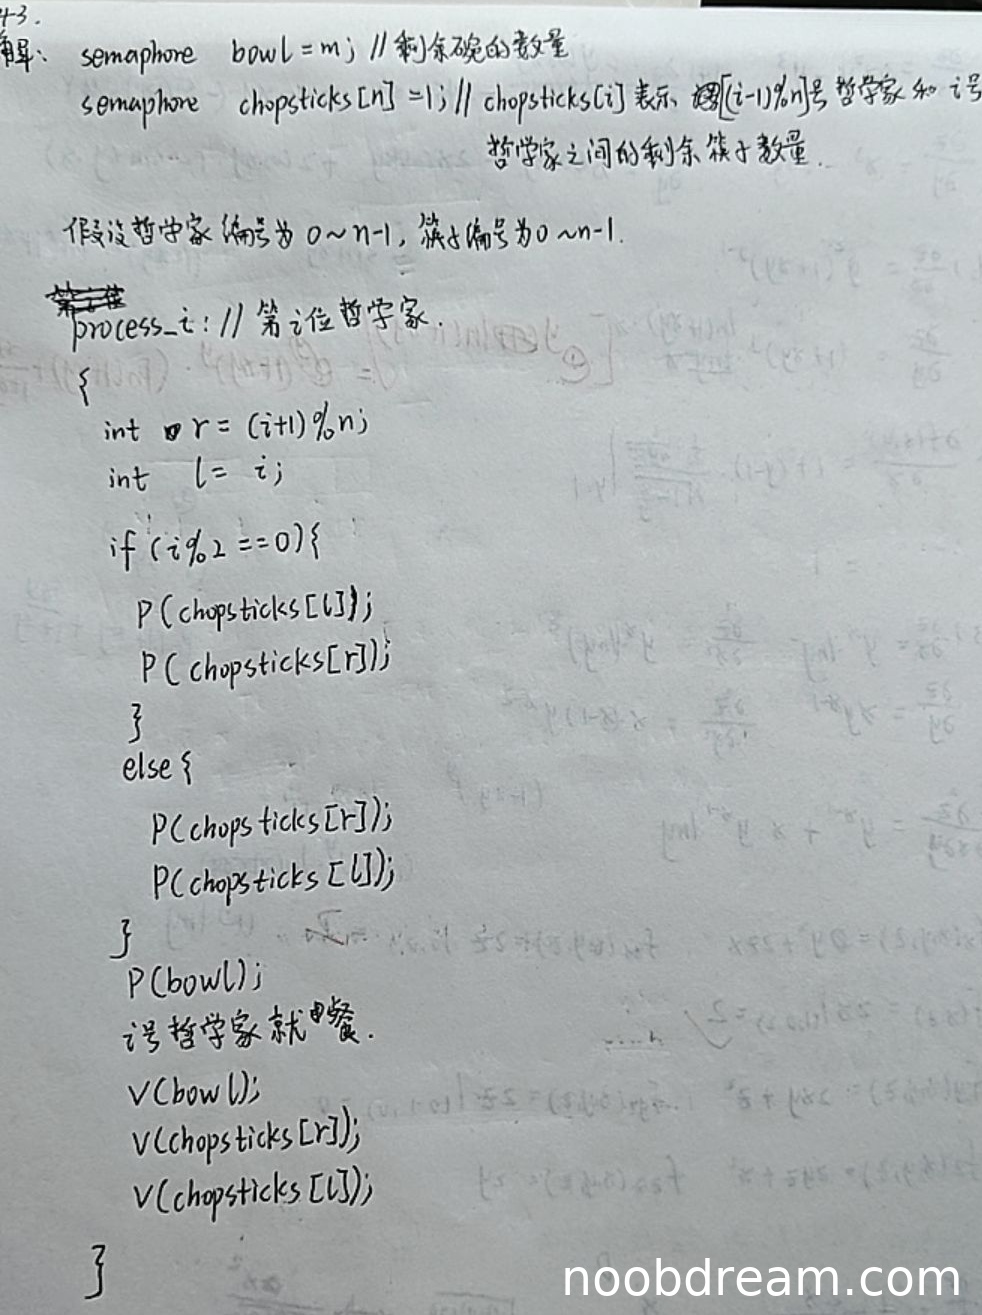 4-3.
解: semaphore bowl = m; // 剩余碗的数量
semaphore chopsticks[n] = 1; // chopsticks[i] 表示 [(i-1)%n]号 哲学家 和 i号
哲学家之间的剩余筷子数量.
假设哲学家编号为 0~n-1, 筷子编号为0~n-1.
process_i: // 第i位哲学家.
{
int r = (i+1)%n;
int l = i;
if (i%2 ==0){
P(chopsticks[l]);
P(chopsticks[r]);
}
else {
P(chopsticks[r]);
P(chopsticks[l]);
}
P(bowl);
i号哲学家就餐.
V(bowl);
V(chopsticks[r]);
V(chopsticks[l]);
}
noobdream.com